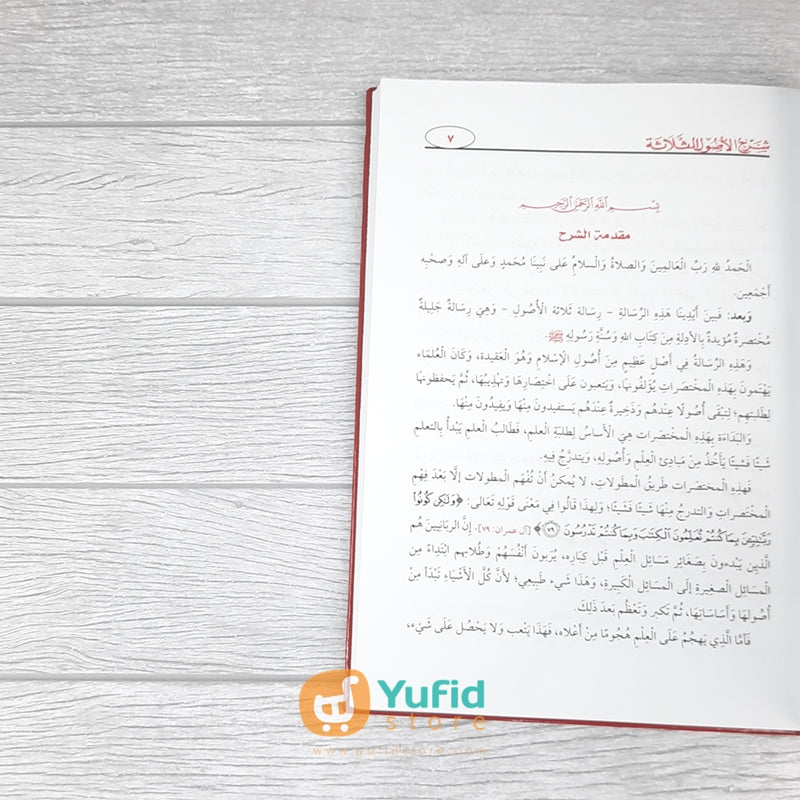 شرح الأصول الثلاثة
٧
بِسْمِ اللَّهِ الرَّحْمَٰنِ الرَّحِيمِ
مقدمة الشرح
الْحَمدُ للهِ رَبِّ الْعَالَمِينَ وَالصلاةُ وَالْسلامُ عَلى نَبِيِّنا مُحَمدٍ وَعَلى آلِهِ وَصَحْبِهِ
أَجْمَعِين.
وَبعد: فَبينَ أَيْدِينَا هَذِهِ الرِّسَالةِ - رِسَالة ثَلاثة الْأُصُولِ - وَهِيَ رِسَالةٌ جَلِيلةٌ
مُخْتصرةٌ مُؤيدةٌ بِالأدِلةِ مِنَ كِتَابِ اللهِ وَسُنَّةِ رَسُولهِ ﷺ.
وَهَذِهِ الرِّسَالةُ فِي أَصْلٍ عَظِيمٍ مِنَ أُصُولِ الْإِسْلامِ وَهُوَ الْعَقِيدة، وَكَانَ الْعُلمَاء
يَهْتمونَ بِهَذِهِ الْمخْتَصراتِ يُؤَلفُونَهَا، وَيَتعبون عَلَى اخْتِصَارِهَا وَتهْذِيبُهَا، ثُمَّ يَحفظونهَا
لِطَلبتِهم؛ لِتبْقَى أُصُولًا عِنْدَهُم وَذَخِيرةً عِنْدَهُم يَستفيدون مِنْهَا وَيفِيدُون مِنْهَا.
وَالبَدَاءَة بِهَذِهِ الْمخْتَصرات هِيَ الْأَساسُ لِطلبةِ العلمِ، فَطَالبُ العلمِ يَبْدأُ بِالتعلمِ
شَيئًا فَشيئًا يَأخُذُ مِنْ مَبَادِئ الْعِلْمِ وَأُصُولِهِ، وَيتدرَّجُ فِيهِ.
فَهذِهِ الْمختصرات طَرِيقُ الْمطولَاتِ، لا يُمكنُ أَنْ تُفْهَم الْمطولات إلَّا بَعْدَ فِهْمِ
الْمختَصراتِ وَالتدرجِ مِنْهَا شَيئًا فَشَيئًا؛ وَلِهذا قَالُوا فِي مَعْنَى قَوْلِهِ تَعالى: ﴿وَلَٰكِن كُونُوا۟
رَبَّٰنِيِّـۧنَ بِمَا كُنتُمْ تُعَلِّمُونَ ٱلْكِتَٰبَ وَبِمَا كُنتُمْ تَدْرُسُونَ ٧٩﴾ [آل عمران: ٧٩]. إنَّ الربَّانِيينَ هُم
الَّذِين يَبْدءون بِصَغَائِر مَسَائلِ الْعِلْمِ قَبْل كِبَارِهِ، يُرَبونَ أَنْفُسَهُمْ وَطُلابهم ابْتِدَاءً مِنَ
الْمسَائلِ الصغِيرةِ إِلَى الْمسَائلِ الْكَبِيرةِ، وَهَذَا شَيء طَبِيعي؛ لأَنَّ كُلَّ الْأَشْيَاءِ تَبْدَأ مِنْ
أُصُولِهَا وَأَسَاسَاتِهَا، ثُمَّ تَكبر وَتَعْظُم بَعدَ ذَلِكَ.
فَأَمَّا الَّذِي يَهجُمُ عَلَى الْعِلْمِ هُجُومًا مِنْ أَعْلاه، فَهَذَا يَتْعب وَلا يَحْصُل عَلَى شَيْءٍ،
Yufid
store
www.yufidstore.com